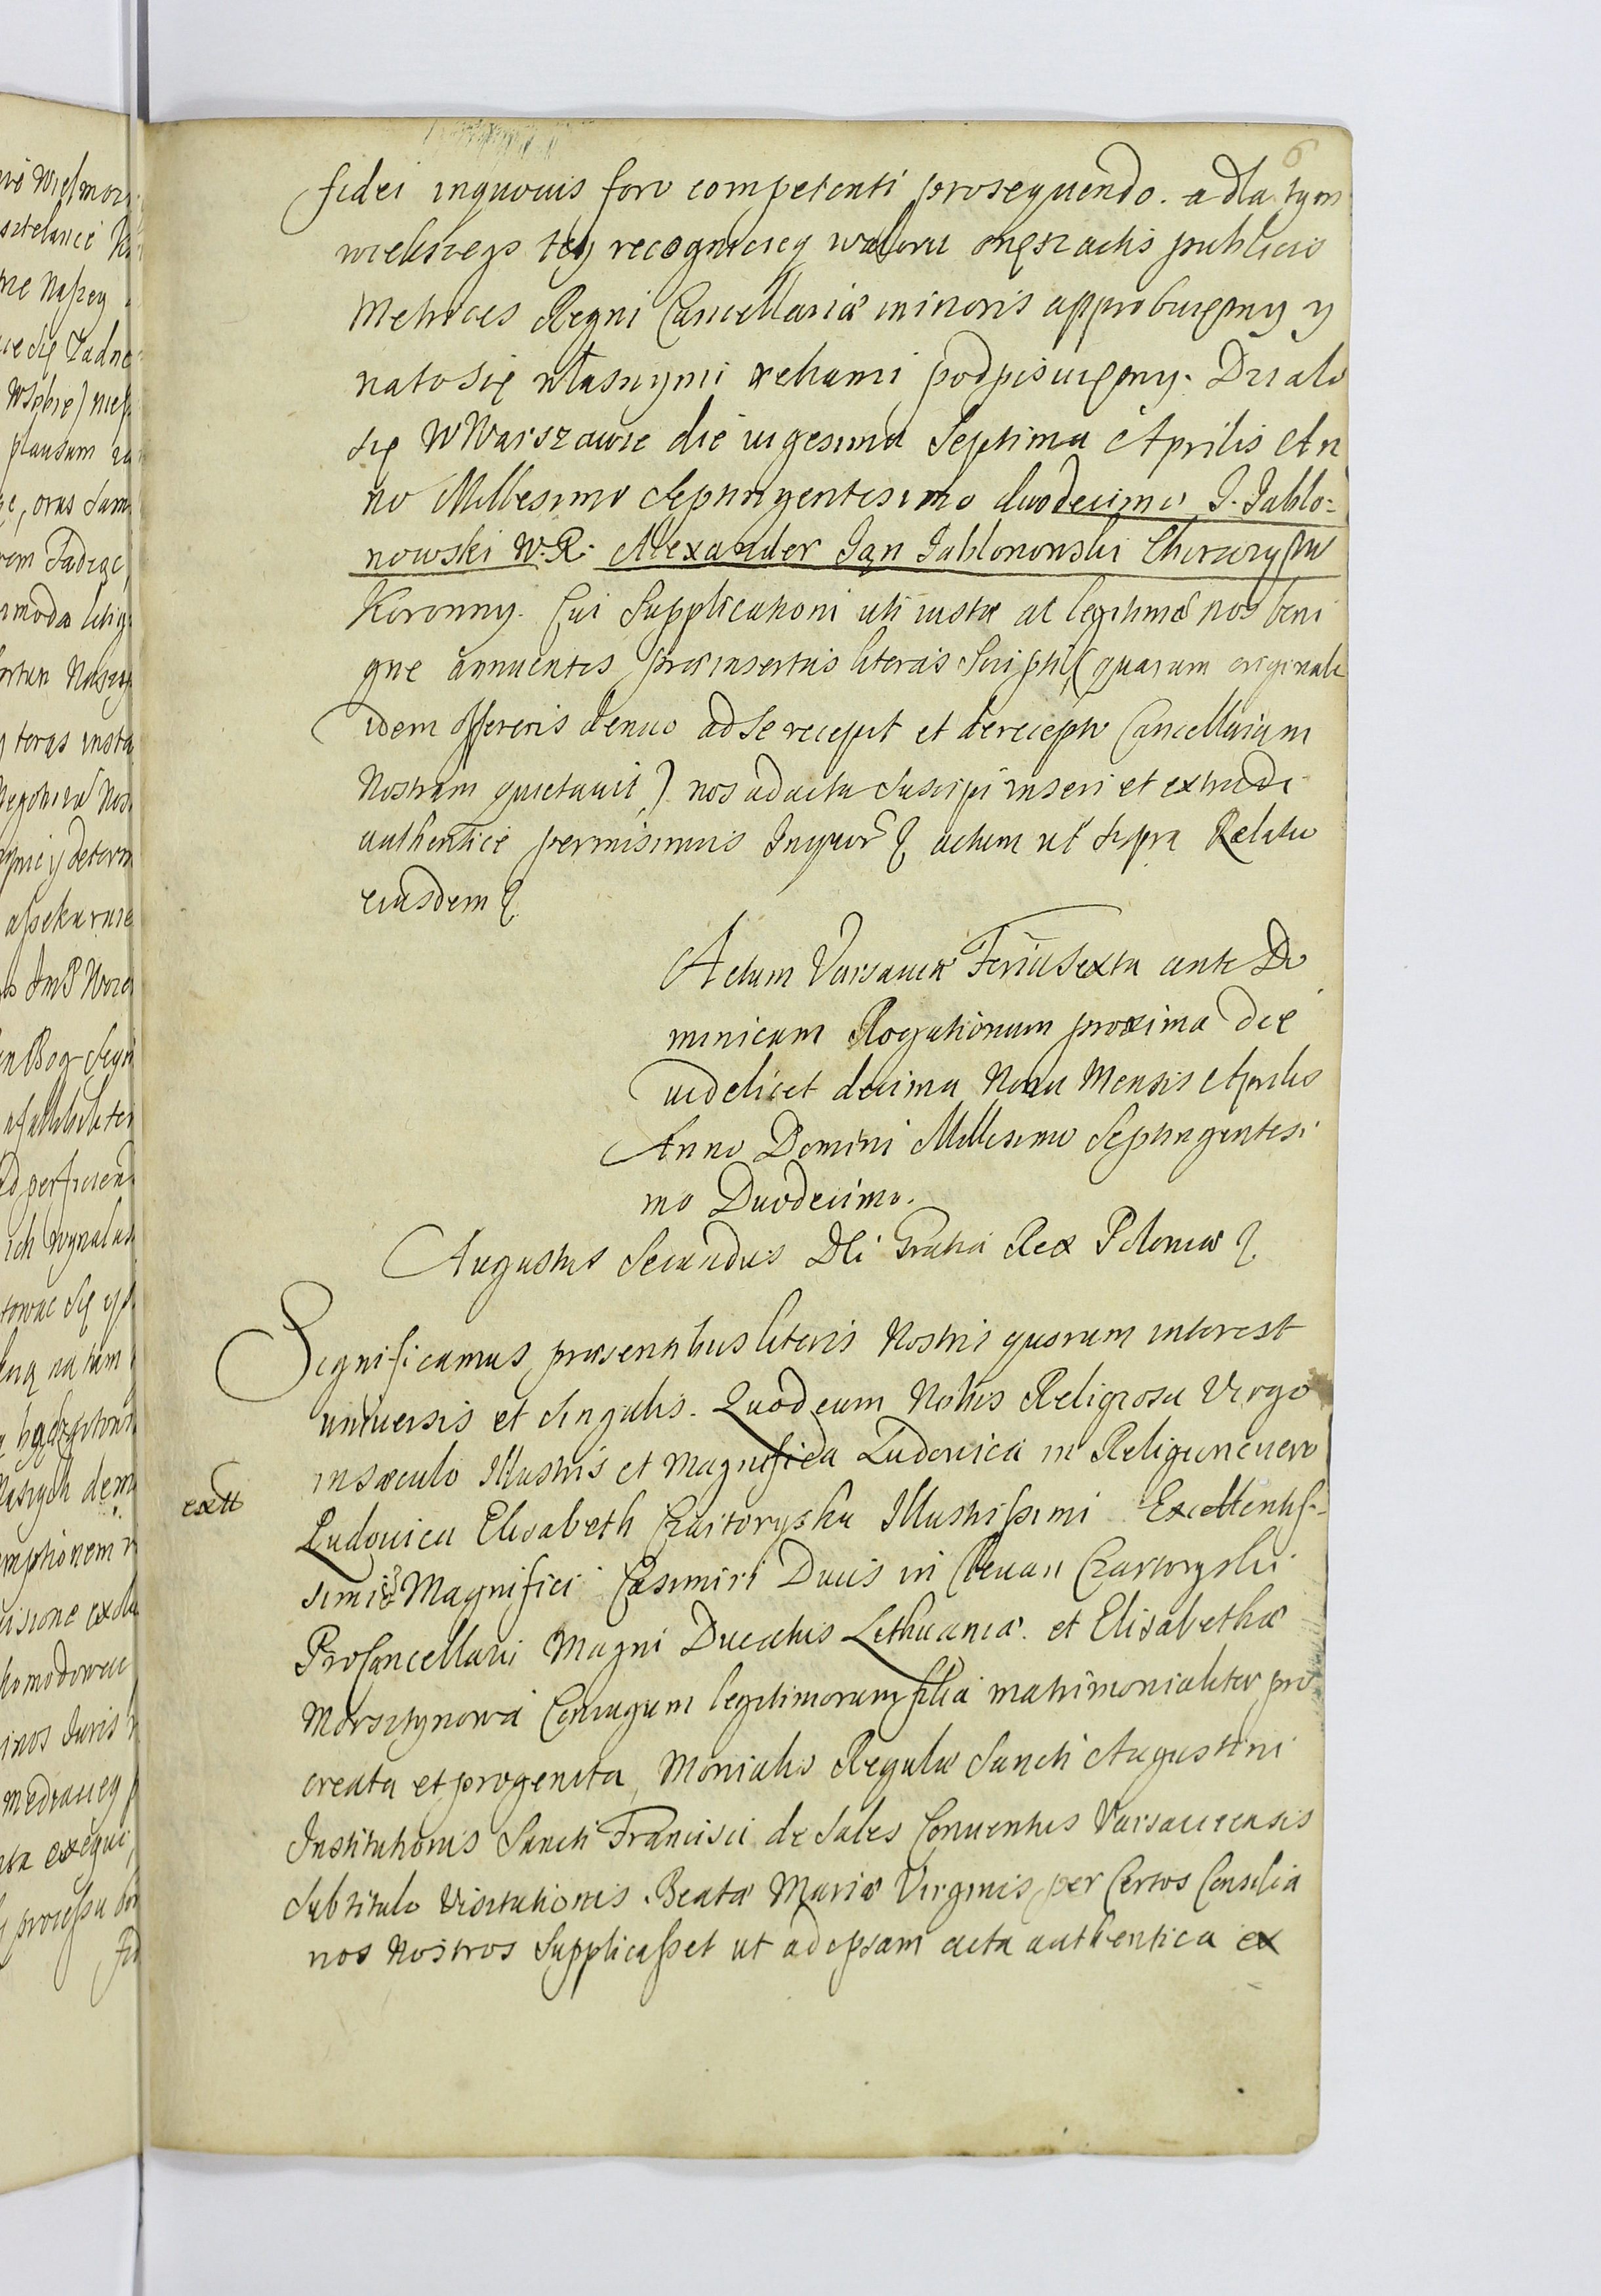 6
fidei inquovis foro competenti prosequendo. adla tym
wiekszego tey recognicieij waloru onęsz actis publicis
Metrices Regni Cancellariæ minoris approbuięmy y
natosię własnymi rękami podpisuięmy. Działo
się WWarszawie die uigesima Septima Aprilis An
no Millesimo Septingentesimo duodecimo J. Jablo=
nowski W.R. Alexander Jan Jablonowski Chorązy Ww
Koronny. Cui Supplicationi uti iustæ ac legitimæ nos beni
gne annuentes præinsertas literas Scripti, (quarum originale
idem offerens denuo adse recepit et derecepto Cancellariam
Nostram quietauit) nos adacta Suscipi inseri et extradi
authentice permisimus Inquor actum ut supra Relatio
eiusdem
Actum Varsauiæ Feria Sexta ante Do
minicam Rogationum proxima die
uidelicet decima Nona Mensis Aprilis
Anno Domini Millesimo Septingentesi
mo Duodecimo.
Augustus Secundus DEi Gratia Rex Poloniæ
Significamus præsentibus literis Nostris quorum interest
uniuersis et singulis. Quodcum Nobis Religiosa Virgo
insæculo Illustris et Magnifica Ludovica in Religione uero
extt
Ludouica Elisabeth Czartoryska Illustrissimi Excellentis-
simi & Magnifici Casimiri Ducis in Clevan Czartoryski
ProCancellarii Magni Ducatus Lithuaniæ et Elisabethæ
Morsztynowa Coniugum legitimorum filia matrimonialiter pro
creata et progenita, Monialis Regulæ Sancti Augustini
Institutionis Sancti Francisci de Sales Conuentus Varsauiensis
Subtitulo Visitationis Beatæ Mariæ Virginis per Certos Consilia
nos Nostros Supplicasset ut adipsam acta authentica ex